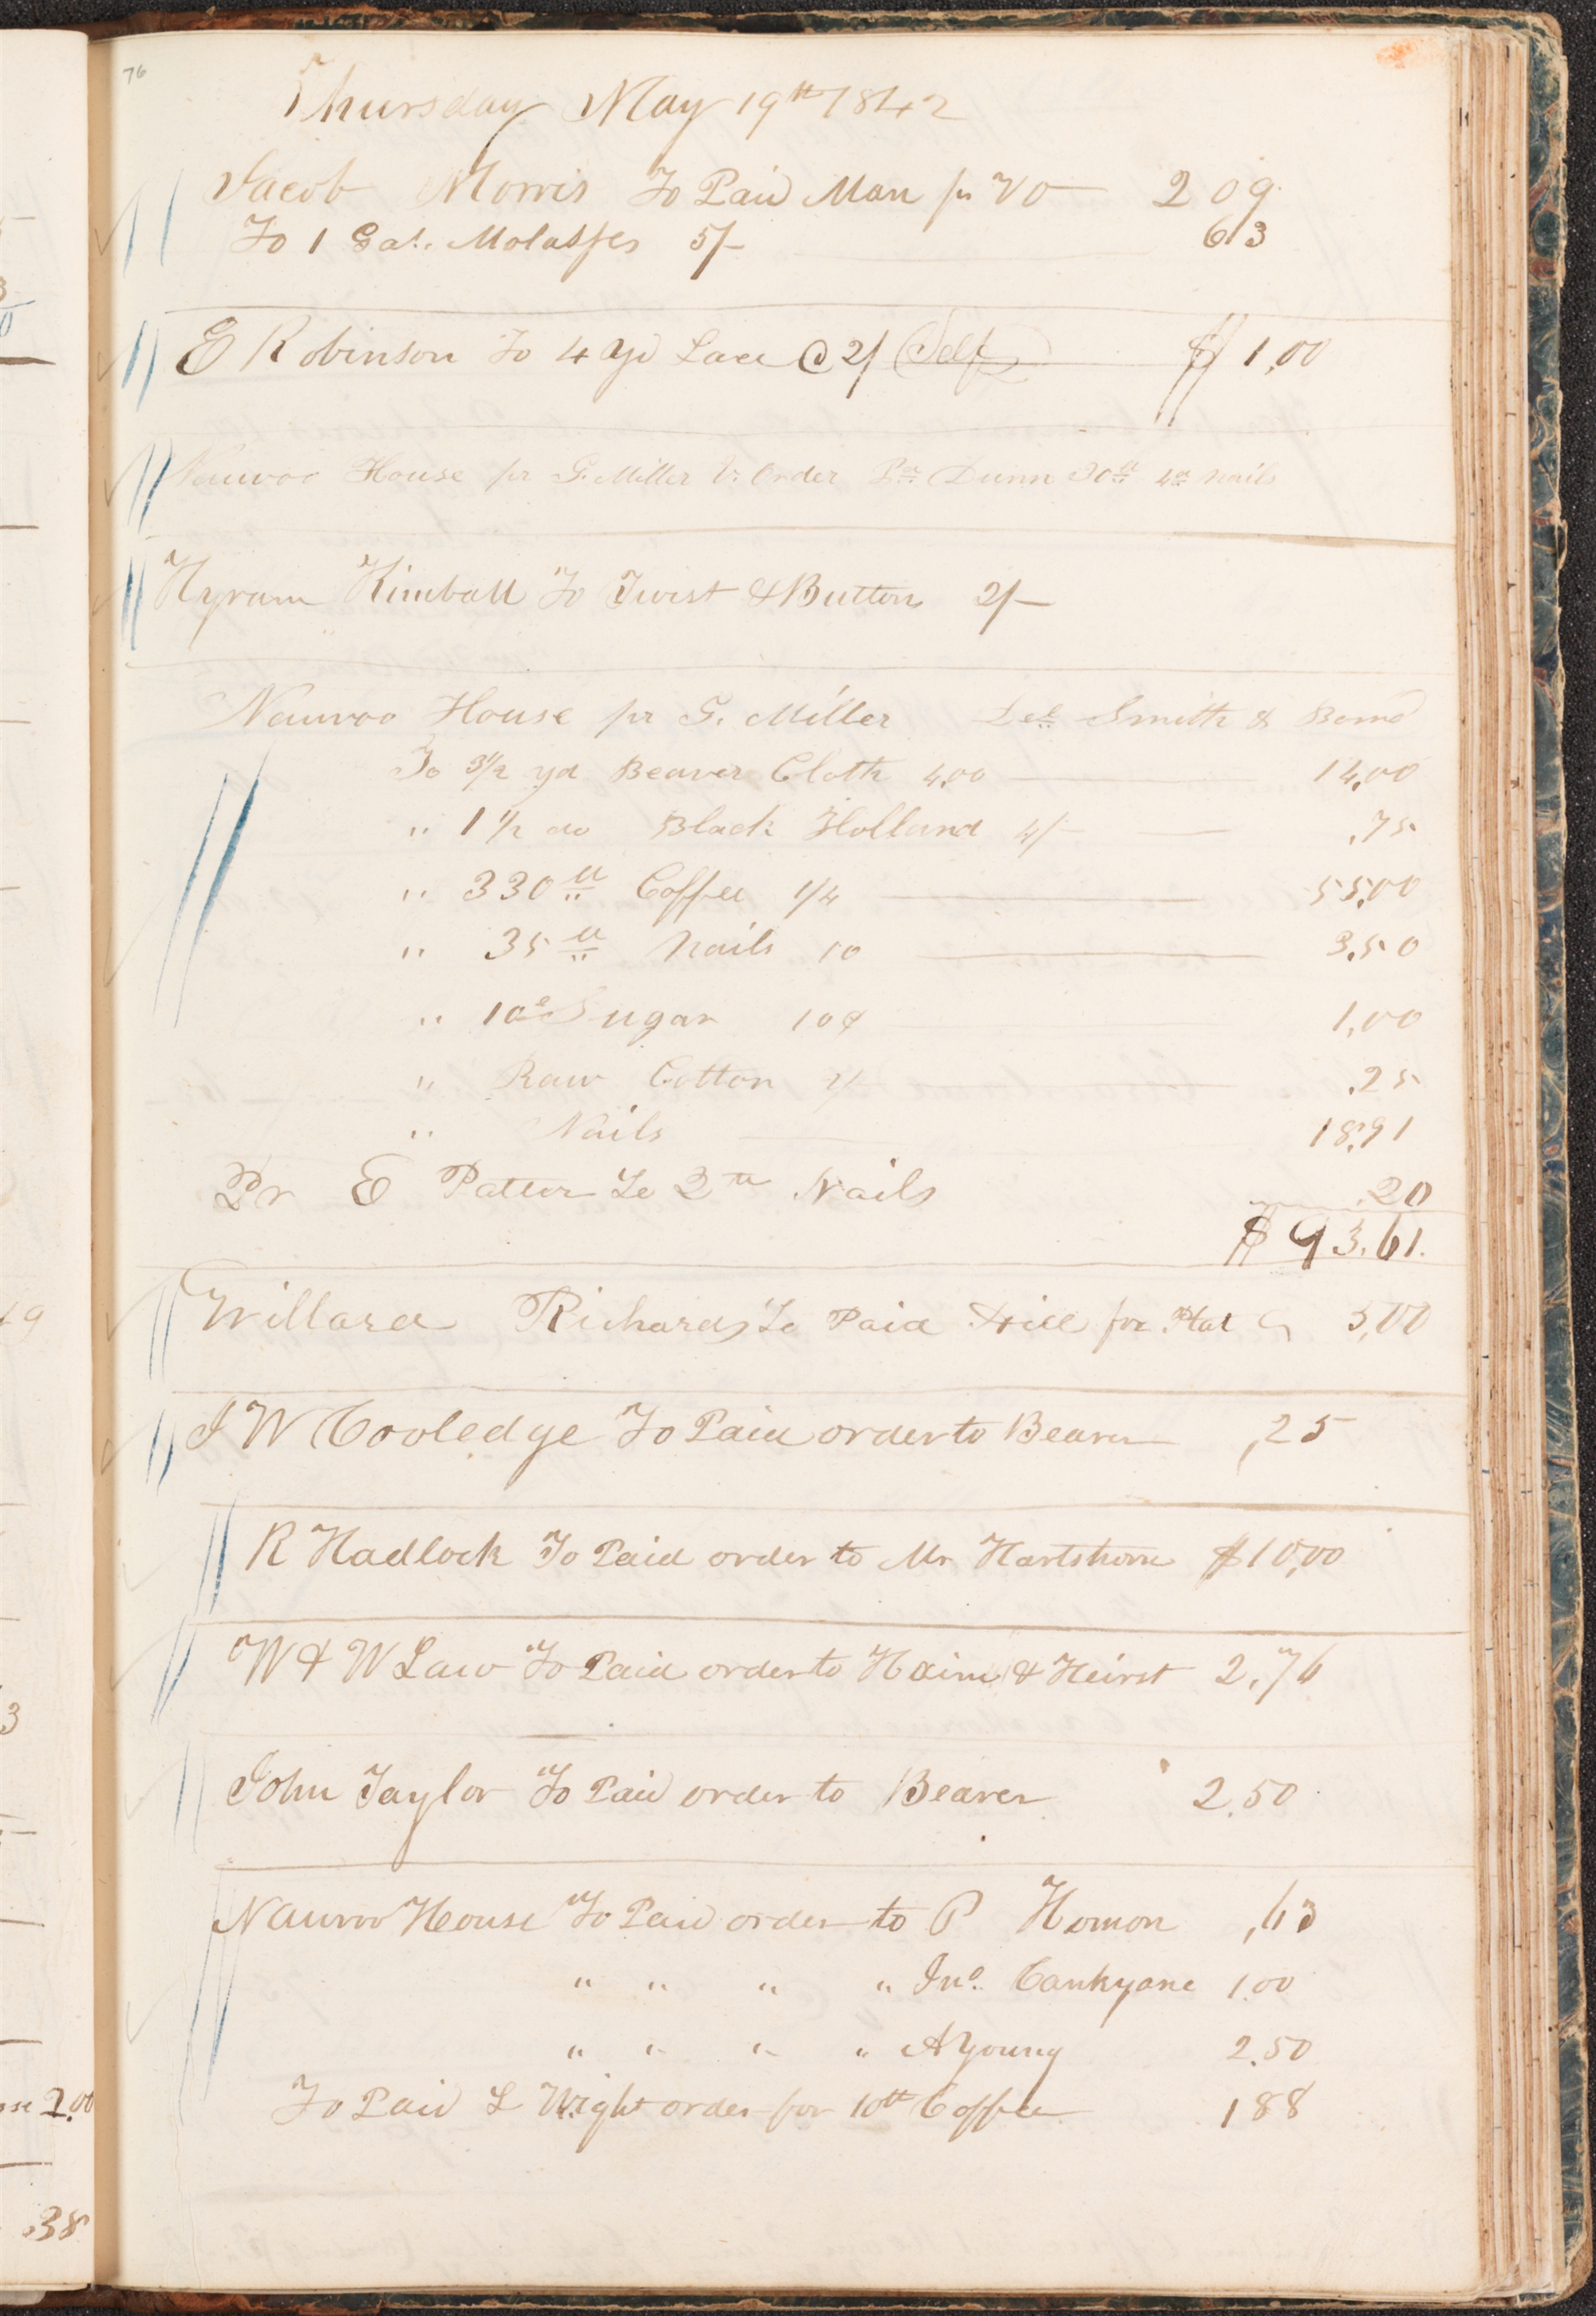 76
Thursday May 19th 1842
Jacob Morris To Paid Man pr VO 2 09
To 1 Gal. Molasses 5/- 63
E Robinson To 4 yd Lace @ 2/ (Self) $ 1,00
Nauvoo House pr G. Miller Order Dunn 30 lb 4d nails
Hyrum Kimball To Twist & Button 2/-
Nauvoo House pr G. Miller Smith &
To 3 1/2 yd Beaver Cloth 4,00 14,00
" 1 1/2 do Black Holland 4/- .75
" 330 lb Coffee 1/4 55,00
" 35 lb Nails 10 3,50
" 10 lb Sugar 10¢ 1,00
" Raw Cotton 2/ .25
" Nails 18,91
Pr E To 2 lb Nails .20
$ 93.61
Willard Richards To Paid Hill for 5,00
J W Cooledge To Paid order to Bearer ,25
R Hadlock To Paid order to Mr Hartshorn $10,00
W & W Law To Paid order to & 2,76
John Taylor To Paid order to Bearer 2.50
Nauvoo House To Paid order to P ,63
" " " " Jno. 1.00
" " " " A Young 2.50
To Paid L Wight order for 10 lb Coffee 1 88
2.00
.38